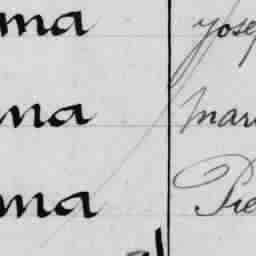 ma Josep
ma Mari
ma Pie